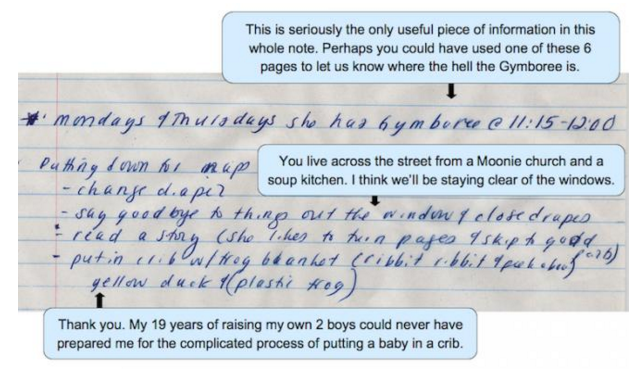 This is seriously the only useful piece of information in this
whole note. Perhaps you could have used one of these 6
pages to let us know where the hell the Gymboree is.
* mondays & Thursdays she has Gymboree @ 11:15-12:00
Putting down for nap
You live across the street from a Moonie church and a
soup kitchen. I think we'll be staying clear of the windows.
- change diaper
- say goodbye to things out the window & close drapes
- read a story (she likes to turn pages & skip to good parts)
- put in crib w/ frog blanket (ribbit ribbit & peek aboo)
yellow duck & (plastic frog)
Thank you. My 19 years of raising my own 2 boys could never have
prepared me for the complicated process of putting a baby in a crib.